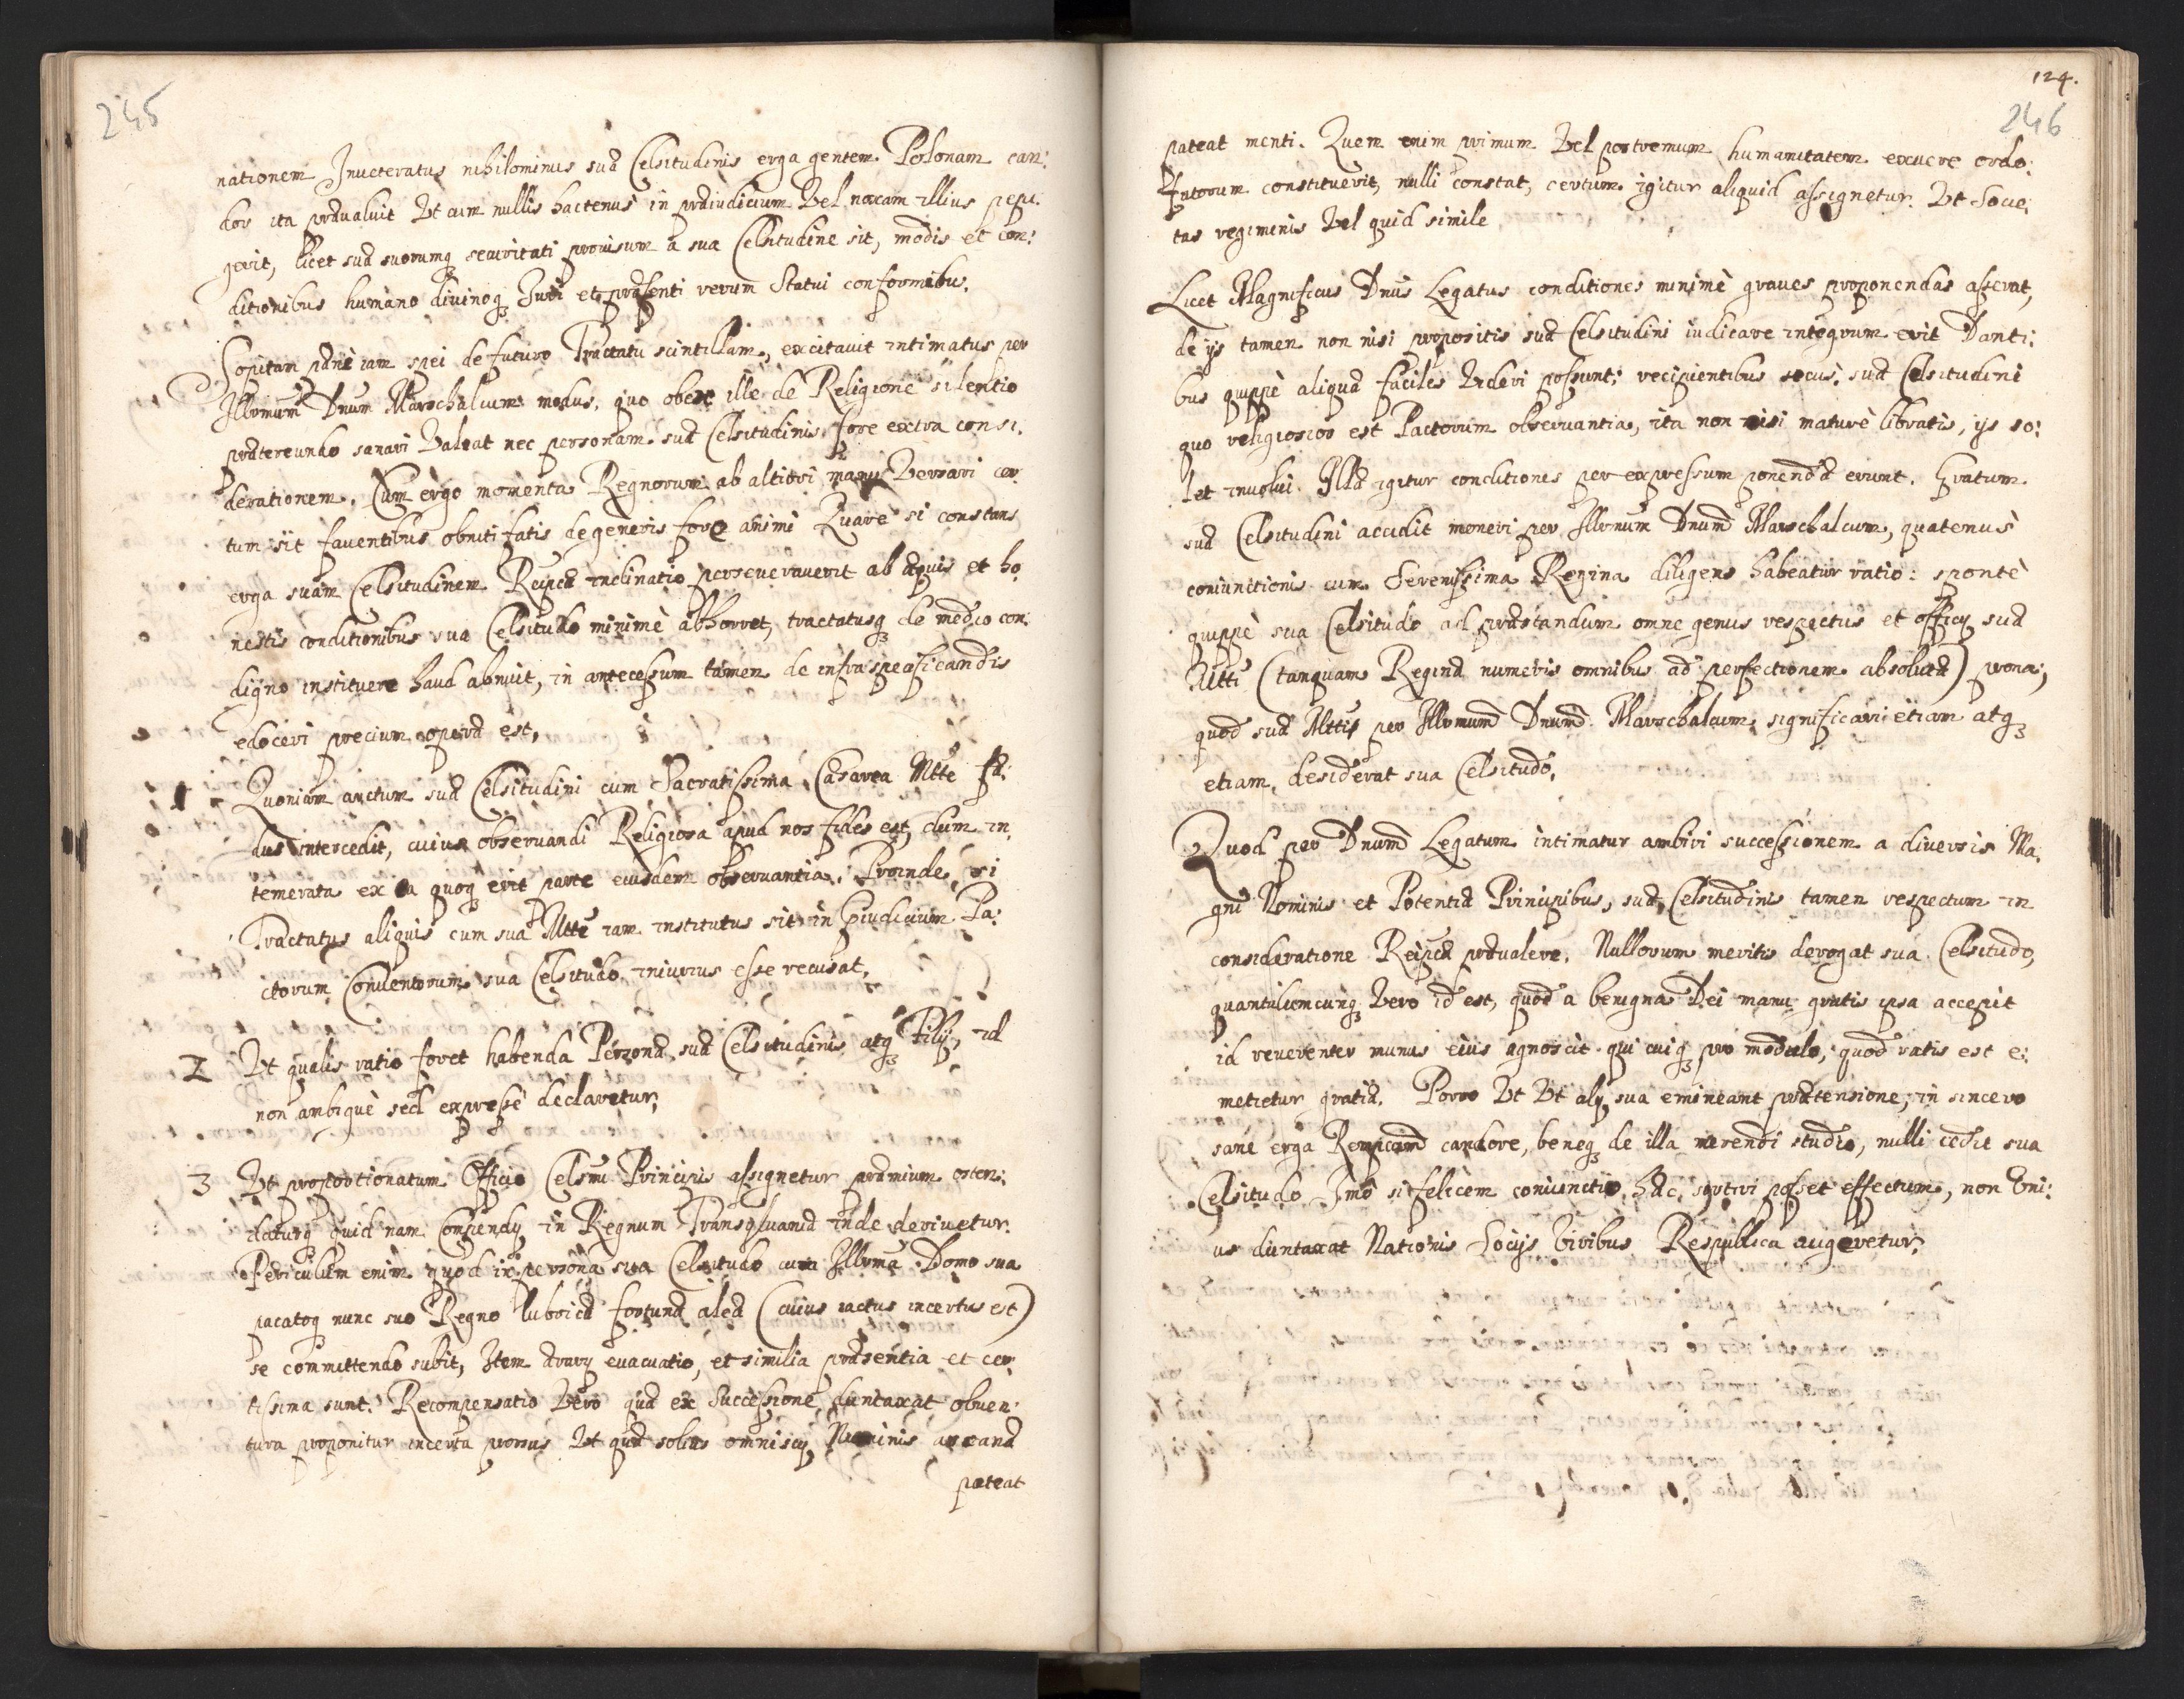 245
nationem Inueteratus nihilominus suæ Celsitudinis erga gentem Polonam can:
dor ita præualuit Vt cum nullis hactenus in præiudicium Vel noxam illius pepi:
gerit, licet suæ suorumq securitati prouisum a sua Celsitudine sit, modis et con:
ditionibus humano diuinoq Juri et præsenti rerum Statui conformibus.
Sopitam pæne iam spei de futuro Tractatu scintillam, excitauit intimatus per
Illrmum Dnum Marschalcum modus, quo obex ille de Religione silentio
prætereundo sanari Valeat nec personam suæ Celsitudinis fore extra consi:
derationem. Cum ergo momenta Regnorum ab altiori manu Versari cer
tum sit fauentibus obniti fatis degeneris fore animi Quare si constans
erga suam Celsitudinem Reipcæ inclinatio perseuerauerit ab æquis et ho
nestis conditionibus sua Celsitudo minimè abhorret, tractatusq de medio con:
digno instituere haud abnuit, in antecessum tamen de infra specificandis
edoceri precium operæ est.
1 Quoniam arctum suæ Celsitudini cum Sacratissima Cæsarea Mtte fæ:
dus intercedit, cuius obseruandi Religiosa apud nos fides est, dum in
temerata ex ea quoq erit parte eiusdem obseruantia. Proinde, si
Tractatus aliquis cum sua Mtte iam institutus sit in præiudicium Pa:
ctorum Conuentorum sua Celsitudo iniurius esse recusat.
2 Vt qualis ratio foret habenda Personæ suæ Celsitudinis atq Filij, id
non ambiguè sed expressè declaretur.
3 Vt proportionatum Officio Celsmi Principis assignetur præmium osten:
daturq quid nam Compendij in Regnum Transyluaniæ inde deriuetur.
Periculum enim quod in persona sua Celsitudo cum Illrma Domo sua
pacatoq nunc suo Regno lubricæ fortunæ aleæ (cuius iactus incertus est)
se committendo subit, Item ærary euacuatio, et similia præsentia et cer
tissima sunt. Recompensatio Vero quæ ex Successione duntaxat obuen:
tura proponitur incerta prorsus Vt quæ solius omniscij Numinis arcanæ
pateat
124.
246
pateat menti. Quem enim primum Vel postremum humanitatem exuere ordo:
futorum constituerit, nulli constat, certum igitur aliquid assignetur. Vt Socie:
tas regiminis Vel quid simile
Licet Magnificus Dnus Legatus conditiones minimè graues proponendas asserat,
de ijs tamen non nisi propositis suæ Celsitudini iudicare integrum erit Danti:
bus quippè aliqua faciles Videri possunt; recipientibus secus. suæ Celsitudini
quo religiosior est Pactorum obseruantia, ita non nisi maturè libratis, ijs so:
let inuolui. Illæ igitur conditiones per expressum ponendæ erunt. Gratum
suæ Celsitudini accidit moneri per Illrmum Dnum Marschalcum, quatenus
coniunctionis cum Serenissima Regina diligens habeatur ratio: spontè
quippè sua Celsitudo ad præstandum omne genus respectus et officij suæ
Mtti (tanquam Reginæ numeris omnibus ad perfectionem absolutæ) prona,
quod suæ Mtti per Illrmum Dnum Marschalcum significari etiam atq
etiam desiderat sua Celsitudo.
Quod per Dnum Legatum intimatur ambiri successionem a diuersis Ma:
gni Nominis et Potentiæ Principibus, suæ Celsitudinis tamen respectum in
consideratione Reipcæ præualere. Nullorum meritis derogat sua Celsitudo,
quantulumcunq Vero id est, quod a benigna Dei manu gratis ipsa accepit
id reuerenter munus eius agnoscit qui cuiq pro modulo, quod satis est e:
metietur gratiæ. Porro Vt Vt alij sua emineant prætensione, in sincero
sane erga Rempcam candore, beneq de illa merendi studio, nulli cedit sua
Celsitudo Imò si felicem coniunctio hæc sortiri posset effectum, non Vni:
us duntaxat Nationis Socijs Viribus Respublica augeretur.